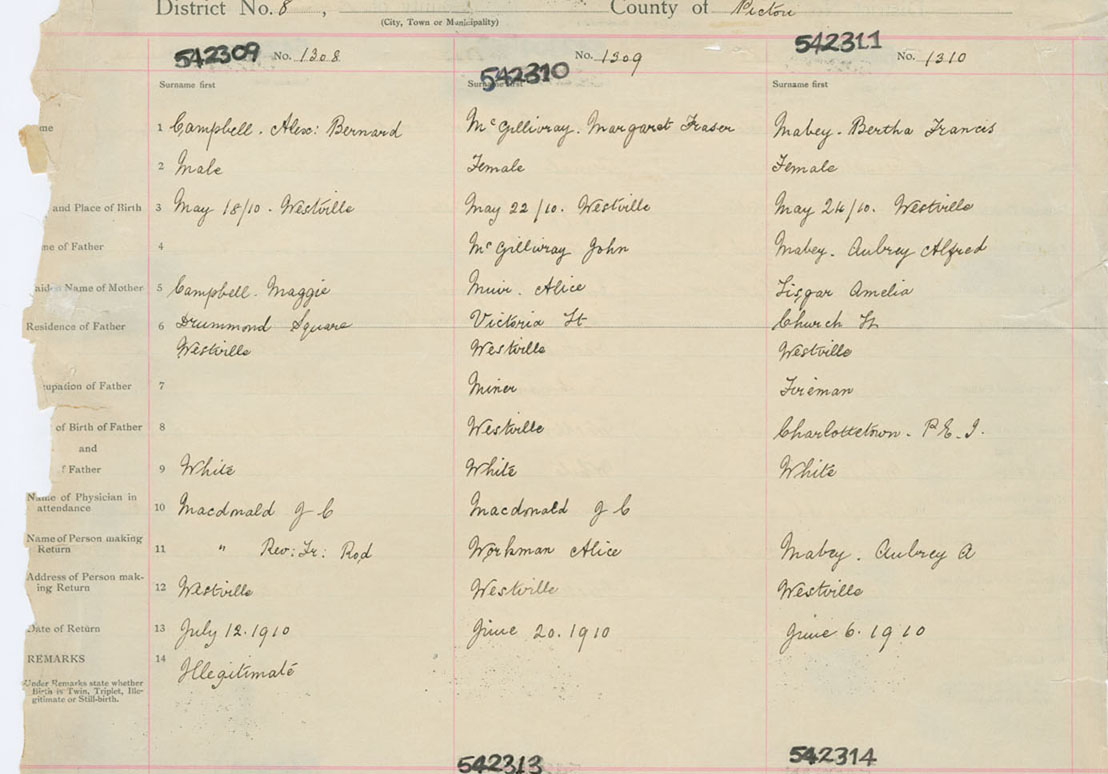 District No. 8 , County of Pictou
(City, Town or Municipality)
542309 No. 1308 542310 No. 1309 542311 No. 1310
Surname first Surname first Surname first
me 1 Campbell. Alex: Bernard McGillivray. Margaret Fraser Mabey. Bertha Francis
2 Male Female Female
and Place of Birth 3 May 18/10. Westville May 22/10. Westville May 24/10. Westville
me of Father 4 McGillivray John Mabey. Aubrey Alfred
aiden Name of Mother 5 Campbell. Maggie Muir. Alice Lisgar Amelia
Residence of Father 6 Drummond Square Victoria St Church St
Westville Westville Westville
cupation of Father 7 Miner Fireman
of Birth of Father 8 Westville Charlottetown. P.E.I.
and
f Father 9 White White White
Name of Physician in
attendance 10 Macdonald J C Macdonald J C
Name of Person making
Return 11 " Rev: Fr: Rod Workman Alice Mabey. Aubrey A
Address of Person mak-
ing Return 12 Westville Westville Westville
Date of Return 13 July 12. 1910 June 20. 1910 June 6. 1910
REMARKS 14 Illegitimate
Under Remarks state whether
Birth is Twin, Triplet, Ille-
gitimate or Still-birth.
542313 542314